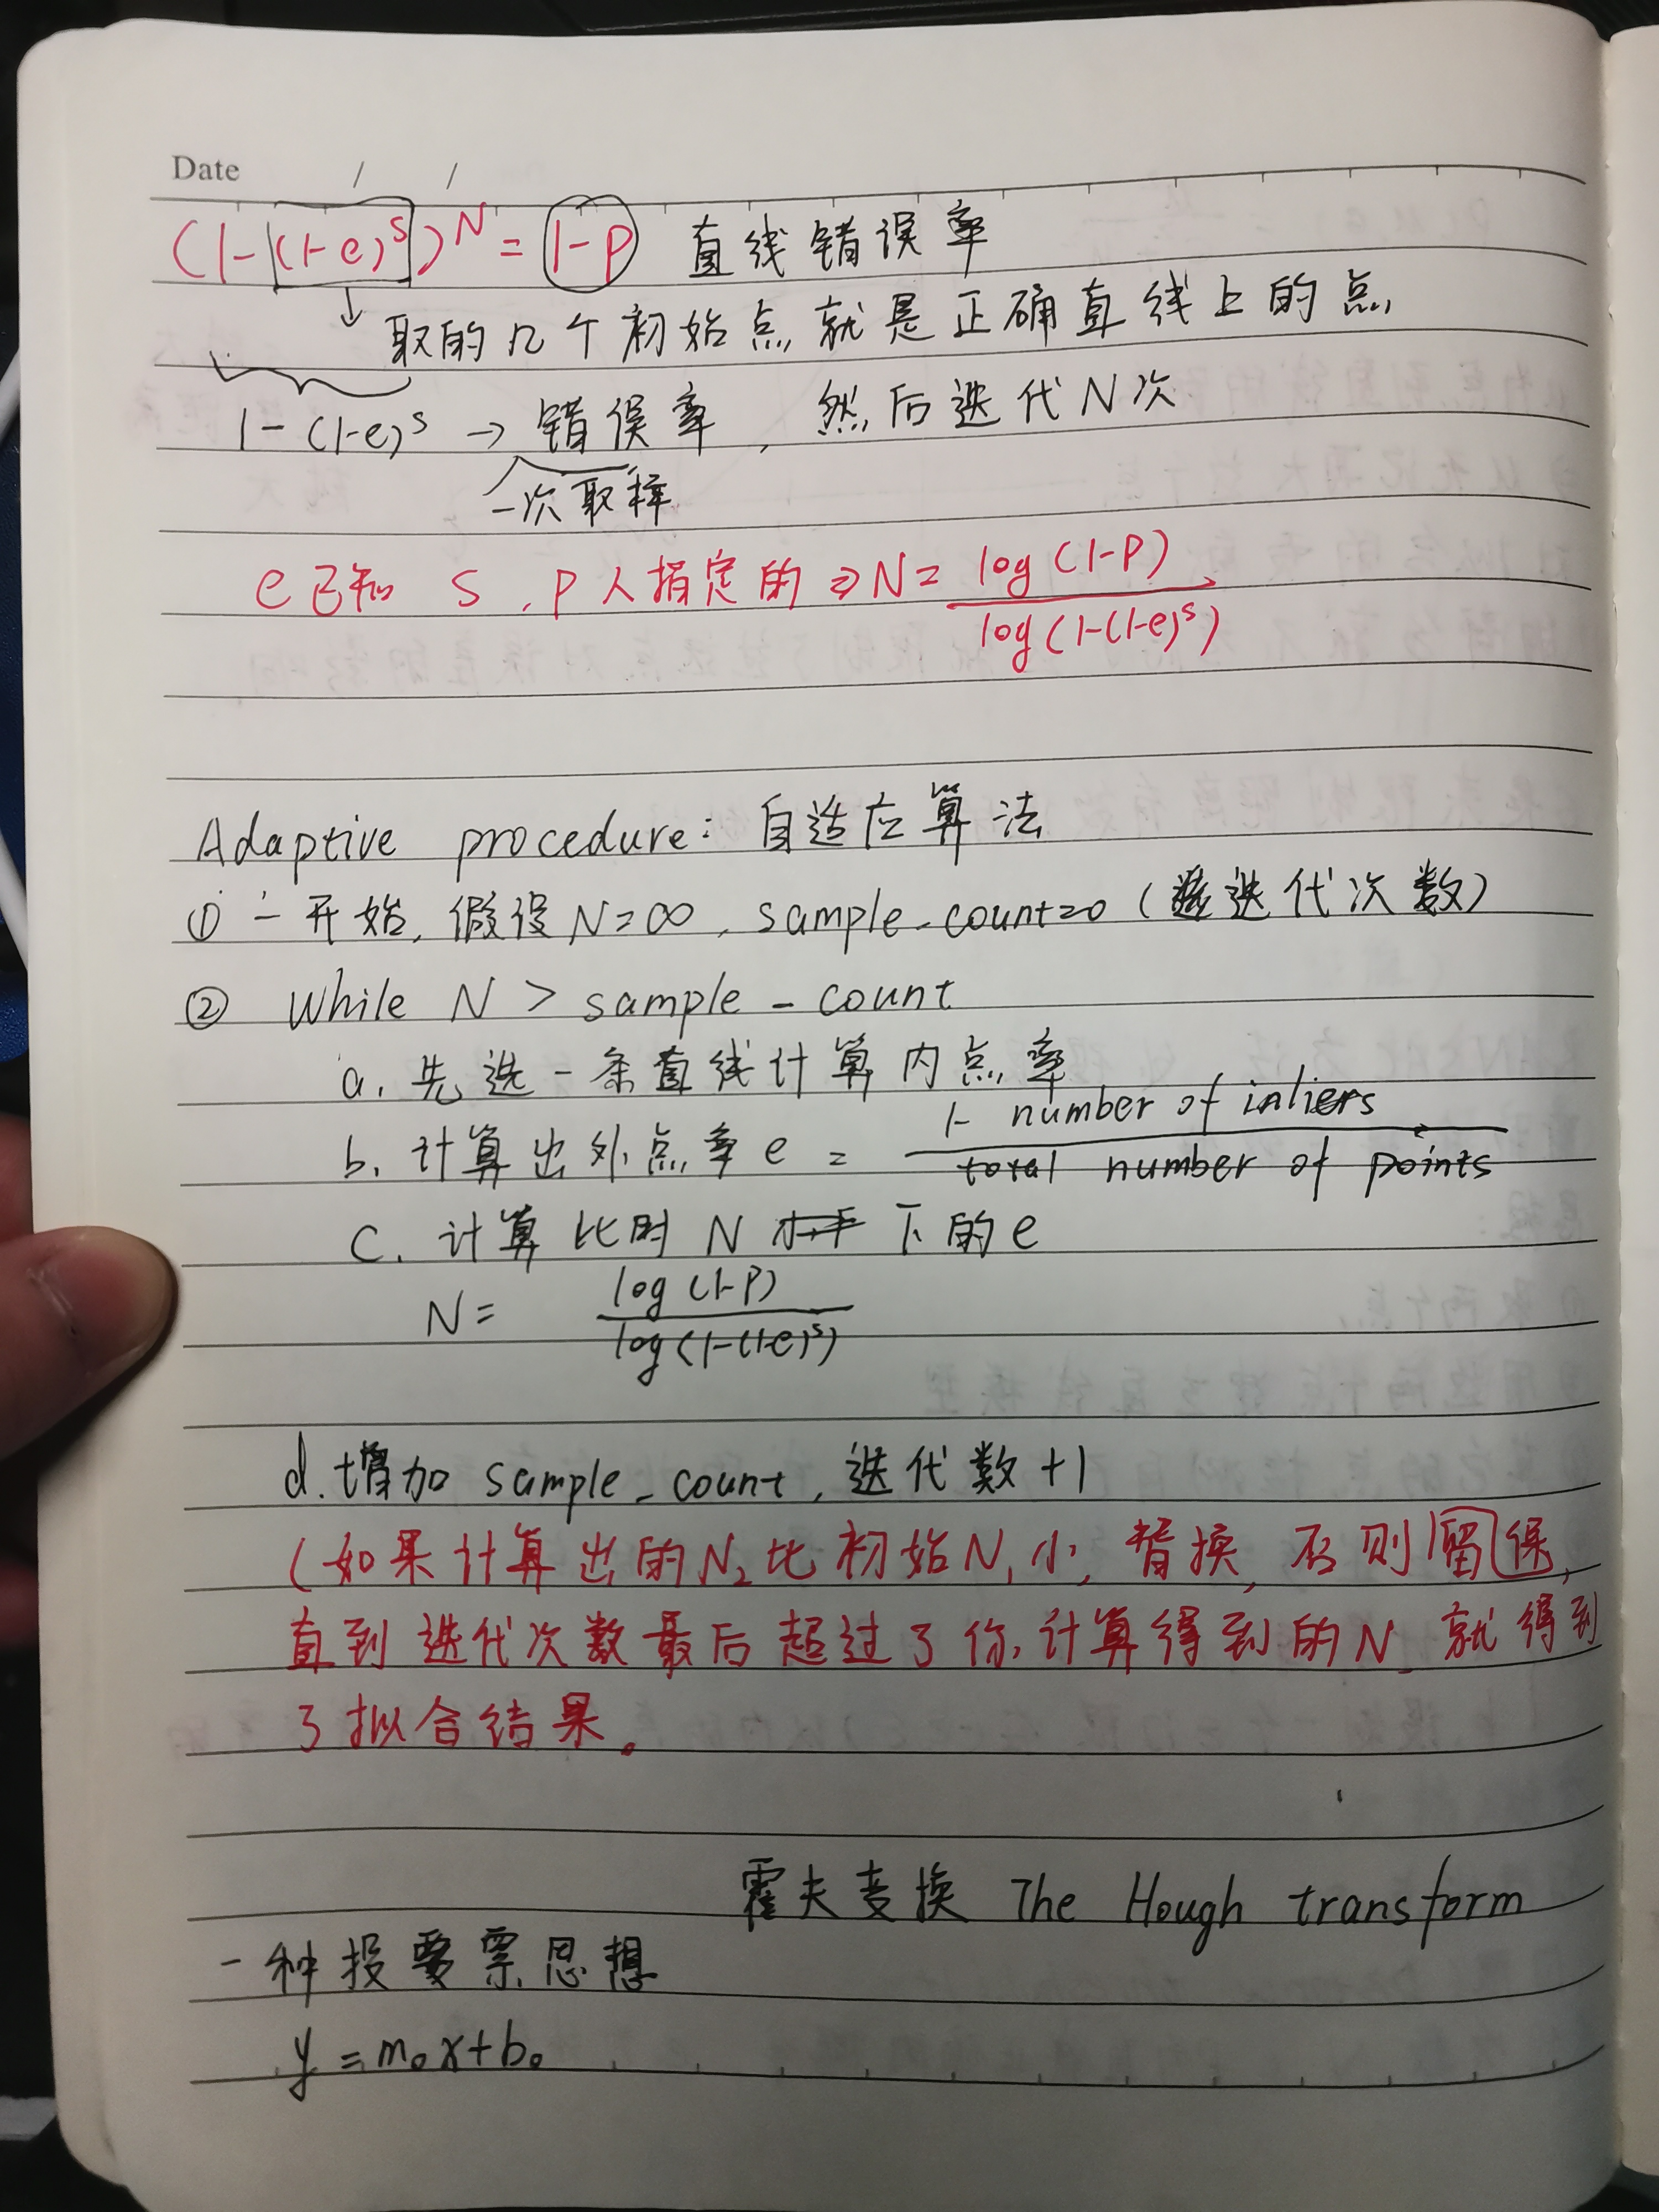 Date / /
(1-(1-e)^s)^N = 1-p 直线错误率
↓ 取的几个初始点就是正确直线上的点
1-(1-e)^s → 错误率，然后迭代N次
一次取样
e已知 s，p人指定的 ⇒ N = log(1-p) / log(1-(1-e)^s)
Adaptive procedure: 自适应算法
① 一开始，假设N=∞，sample_count=0（迭代次数）
② While N > sample_count
a. 先选一条直线计算内点率
b. 计算出外点率e = 1- number of inliers / total number of points
c. 计算比时N 下的e
N = log(1-p) / log(1-(1-e)^s)
d. 增加 sample_count，迭代数+1
（如果计算出的N₂比初始N₁小，替换，否则留保，
直到迭代次数最后超过了你计算得到的N，就得到
了拟合结果。
霍夫变换 The Hough transform
一种投票思想
y = m₀x+b₀